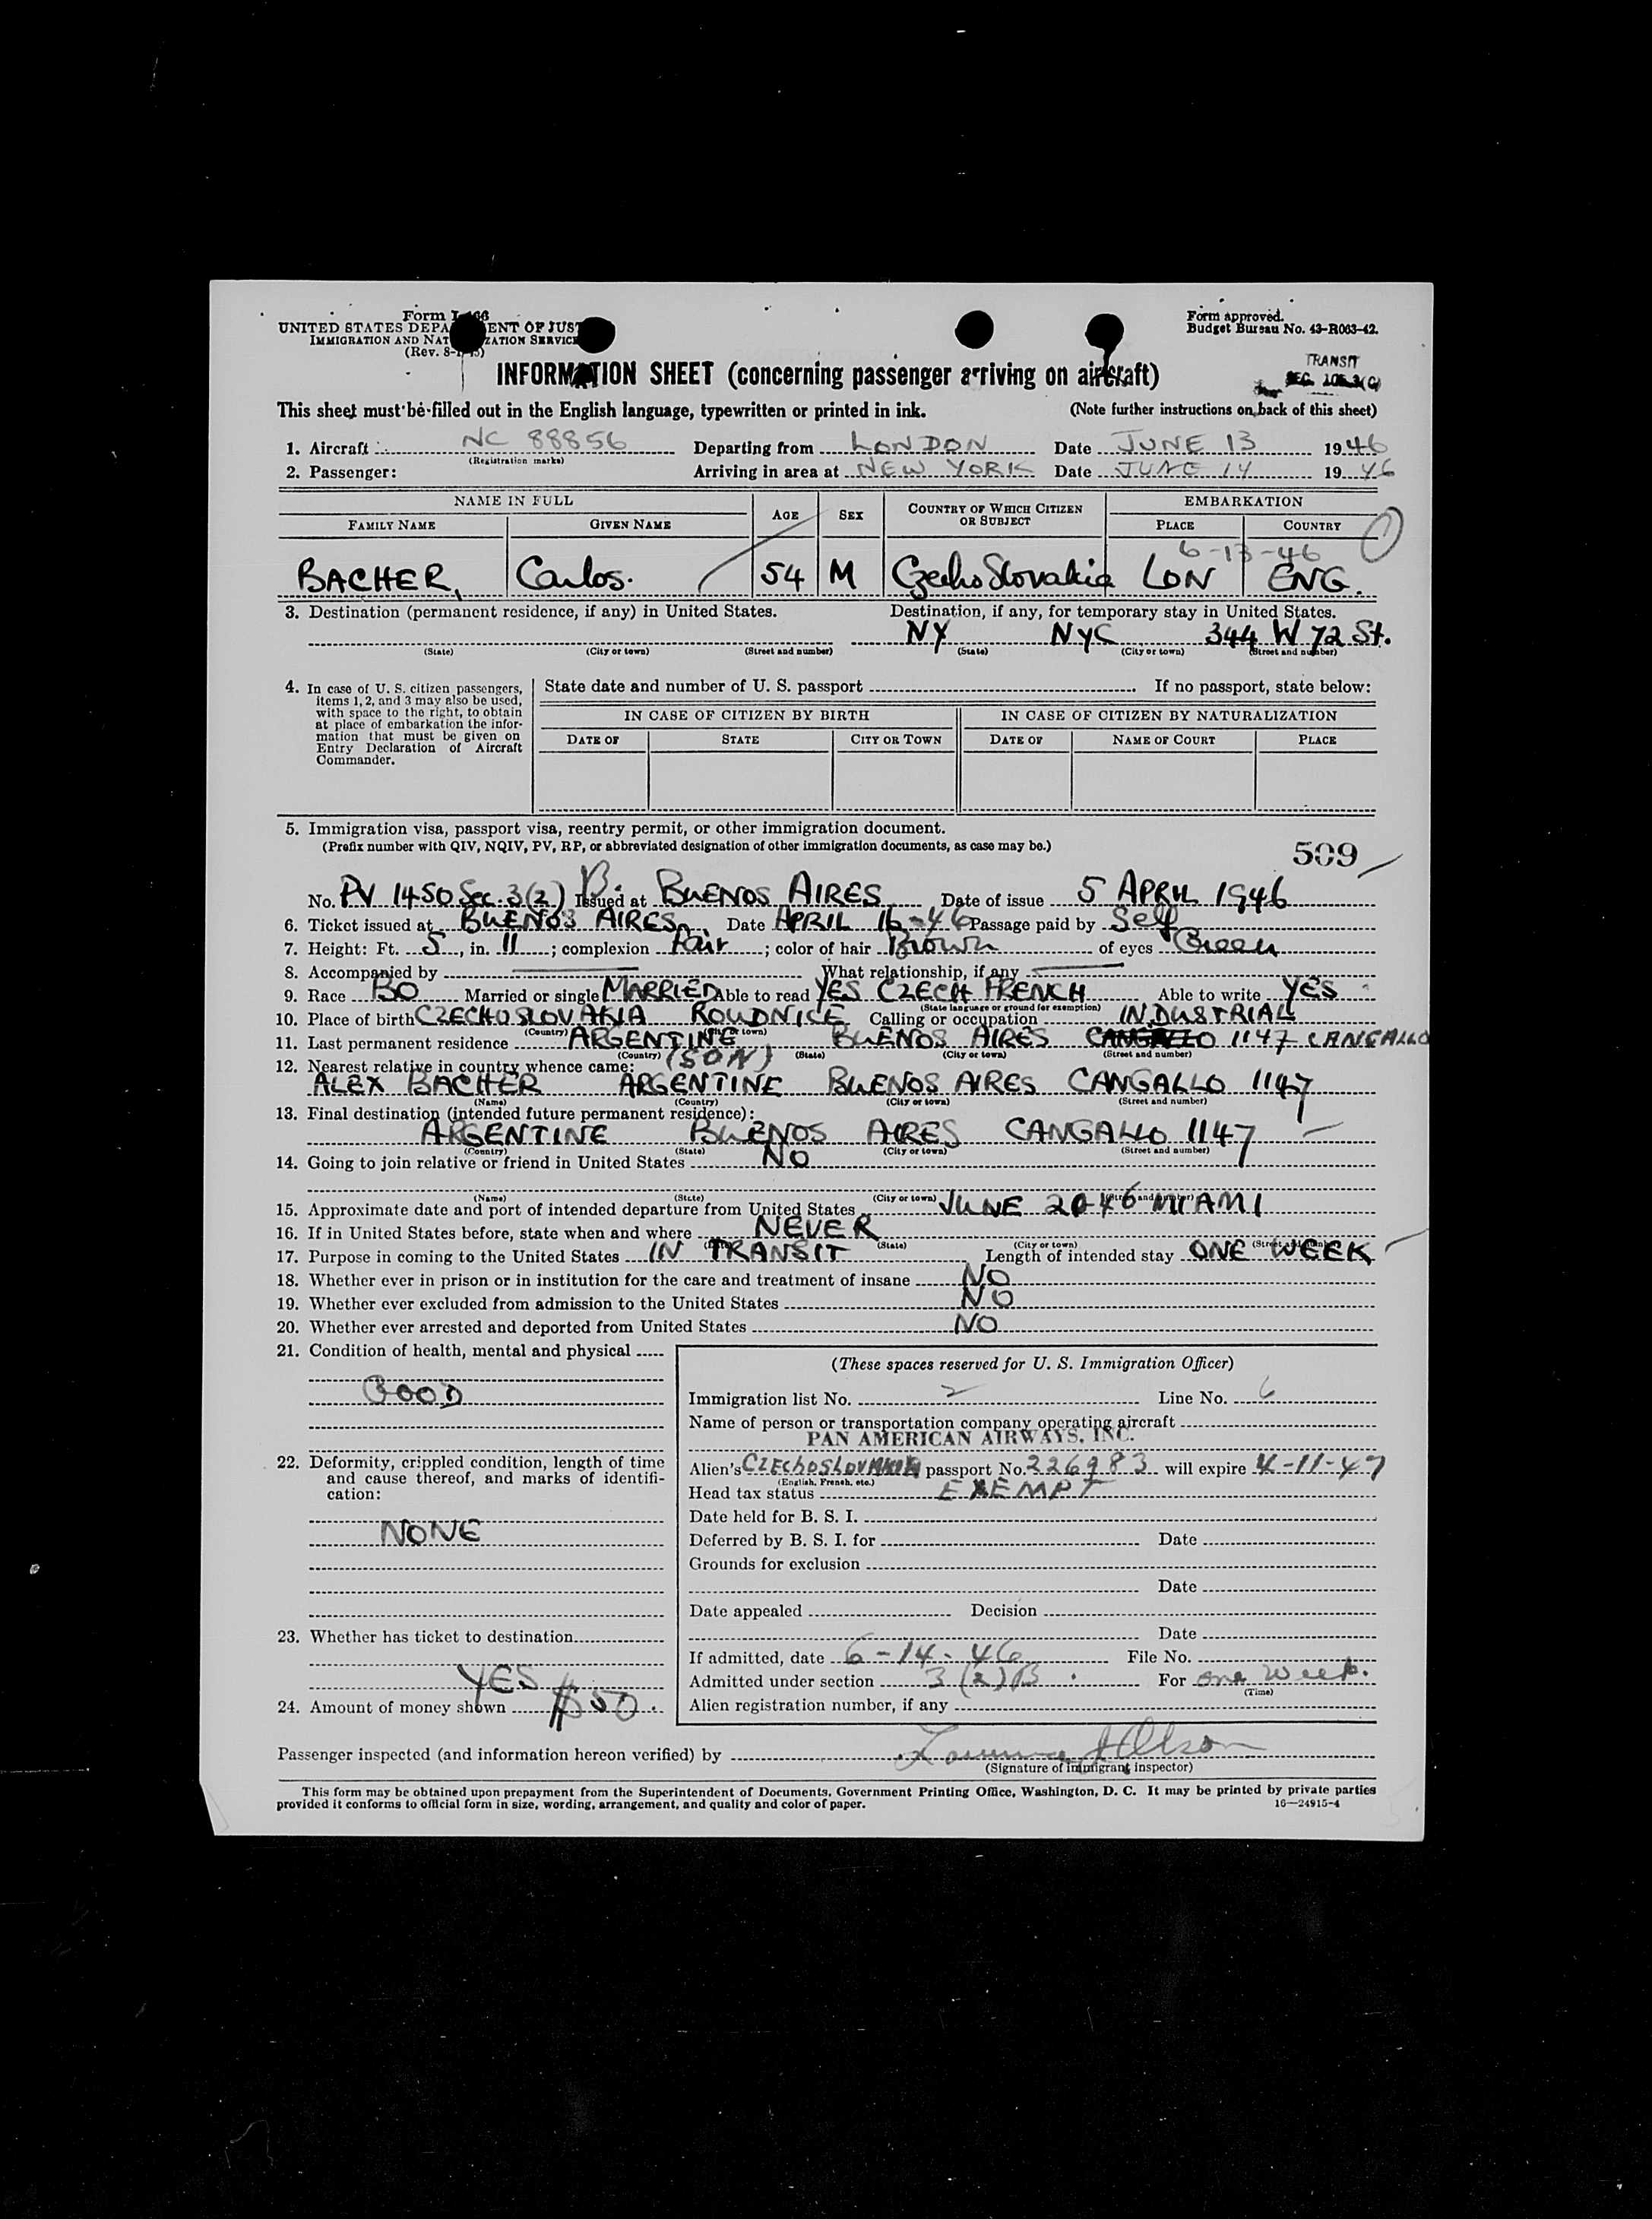 Form I-466
UNITED STATES DEPARTMENT OF JUSTICE
IMMIGRATION AND NATURALIZATION SERVICE
(Rev. 8-1-45)
Form approved.
Budget Bureau No. 43-R063-42.
TRANSIT
SEC.
INFORMATION SHEET (concerning passenger arriving on aircraft)
This sheet must be filled out in the English language, typewritten or printed in ink. (Note further instructions on back of this sheet)
1. Aircraft NC 88856 Departing from LONDON Date JUNE 13 1946
(Registration marks)
2. Passenger: Arriving in area at NEW YORK Date JUNE 14 1946
NAME IN FULL AGE SEX COUNTRY OF WHICH CITIZEN OR SUBJECT EMBARKATION
FAMILY NAME GIVEN NAME PLACE COUNTRY
6-13-46
BACHER, Carlos. 54 M CzechoSlovakia LON ENG.
3. Destination (permanent residence, if any) in United States. Destination, if any, for temporary stay in United States.
NY NYC 344 W 72 St.
(State) (City or town) (Street and number) (State) (City or town) (Street and number)
4. In case of U. S. citizen passengers, items 1, 2, and 3 may also be used, with space to the right, to obtain at place of embarkation the information that must be given on Entry Declaration of Aircraft Commander.
State date and number of U. S. passport If no passport, state below:
IN CASE OF CITIZEN BY BIRTH IN CASE OF CITIZEN BY NATURALIZATION
DATE OF STATE CITY OR TOWN DATE OF NAME OF COURT PLACE
5. Immigration visa, passport visa, reentry permit, or other immigration document.
(Prefix number with QIV, NQIV, PV, RP, or abbreviated designation of other immigration documents, as case may be.)
509
No. PV 1450 Sec. 3(2) B. Issued at BUENOS AIRES Date of issue 5 APRIL 1946
6. Ticket issued at BUENOS AIRES Date APRIL 16-46 Passage paid by Self
7. Height: Ft. 5, in. 11; complexion Fair; color of hair Brown of eyes Green
8. Accompanied by What relationship, if any
9. Race BO Married or single MARRIED Able to read YES CZECH FRENCH Able to write YES
(State language or ground for exemption)
10. Place of birth CZECHOSLOVAKIA ROUDNICE Calling or occupation INDUSTRIAL
(Country) (City or town)
11. Last permanent residence ARGENTINE BUENOS AIRES CANGALLO 1147 CANGALLO
(Country) (State) (City or town) (Street and number)
12. Nearest relative in country whence came: (SON)
ALEX BACHER ARGENTINE BUENOS AIRES CANGALLO 1147
(Name) (Country) (City or town) (Street and number)
13. Final destination (intended future permanent residence):
ARGENTINE BUENOS AIRES CANGALLO 1147
(Country) (State) (City or town) (Street and number)
14. Going to join relative or friend in United States NO
(Name) (State) (City or town) (Street and number)
15. Approximate date and port of intended departure from United States JUNE 20 46 MIAMI
16. If in United States before, state when and where NEVER
(State) (City or town) (Street and number)
17. Purpose in coming to the United States IN TRANSIT Length of intended stay ONE WEEK
18. Whether ever in prison or in institution for the care and treatment of insane NO
19. Whether ever excluded from admission to the United States NO
20. Whether ever arrested and deported from United States NO
21. Condition of health, mental and physical
GOOD
22. Deformity, crippled condition, length of time and cause thereof, and marks of identification:
NONE
23. Whether has ticket to destination
YES
24. Amount of money shown $50.
(These spaces reserved for U. S. Immigration Officer)
Immigration list No. 2 Line No. 6
Name of person or transportation company operating aircraft
PAN AMERICAN AIRWAYS, INC.
Alien's CZECHOSLOVAKIA passport No. 226983 will expire 4-11-47
(English, French, etc.)
Head tax status EXEMPT
Date held for B. S. I.
Deferred by B. S. I. for Date
Grounds for exclusion
Date
Date appealed Decision
Date
If admitted, date 6-14-46 File No.
Admitted under section 3(2)B. For one week.
(Time)
Alien registration number, if any
Passenger inspected (and information hereon verified) by Lawrence J Olson
(Signature of immigrant inspector)
This form may be obtained upon prepayment from the Superintendent of Documents, Government Printing Office, Washington, D. C. It may be printed by private parties
provided it conforms to official form in size, wording, arrangement, and quality and color of paper. 16—24915-4